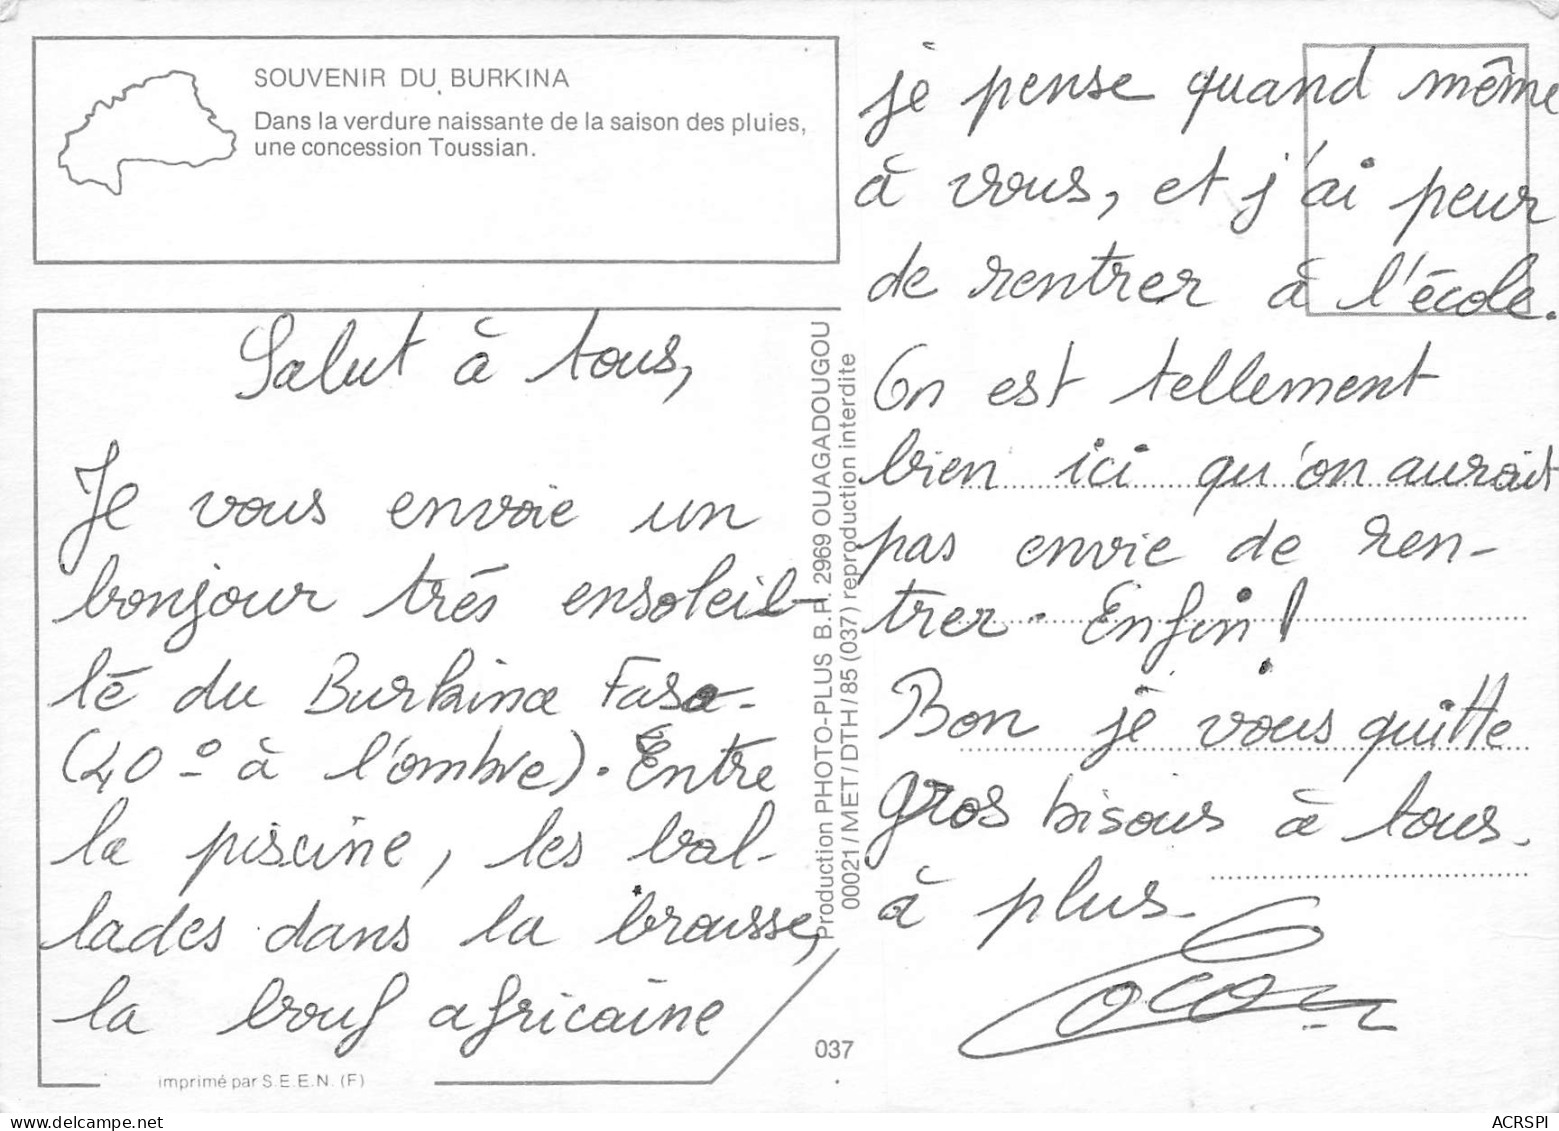 SOUVENIR DU BURKINA
Dans la verdure naissante de la saison des pluies,
une concession Toussian.
Salut à tous,
Je vous envoie un
bonjour trés ensoleil-
lé du Burkina Faso-
(40° à l'ombre). Entre
la piscine, les bal-
lades dans la brousse,
la bouf africaine
je pense quand même
à vous, et j'ai peur
de rentrer à l'école.
On est tellement
bien ici qu'on aurait
pas envie de ren-
trer. Enfin!
Bon je vous quitte
gros bisous à tous.
à plus-
Production PHOTO-PLUS B.P. 2969 OUAGADOUGOU
00021/MET/DTH/85 (037) reproduction interdite
037
imprimé par S.E.E.N. (F)
ACRSPI